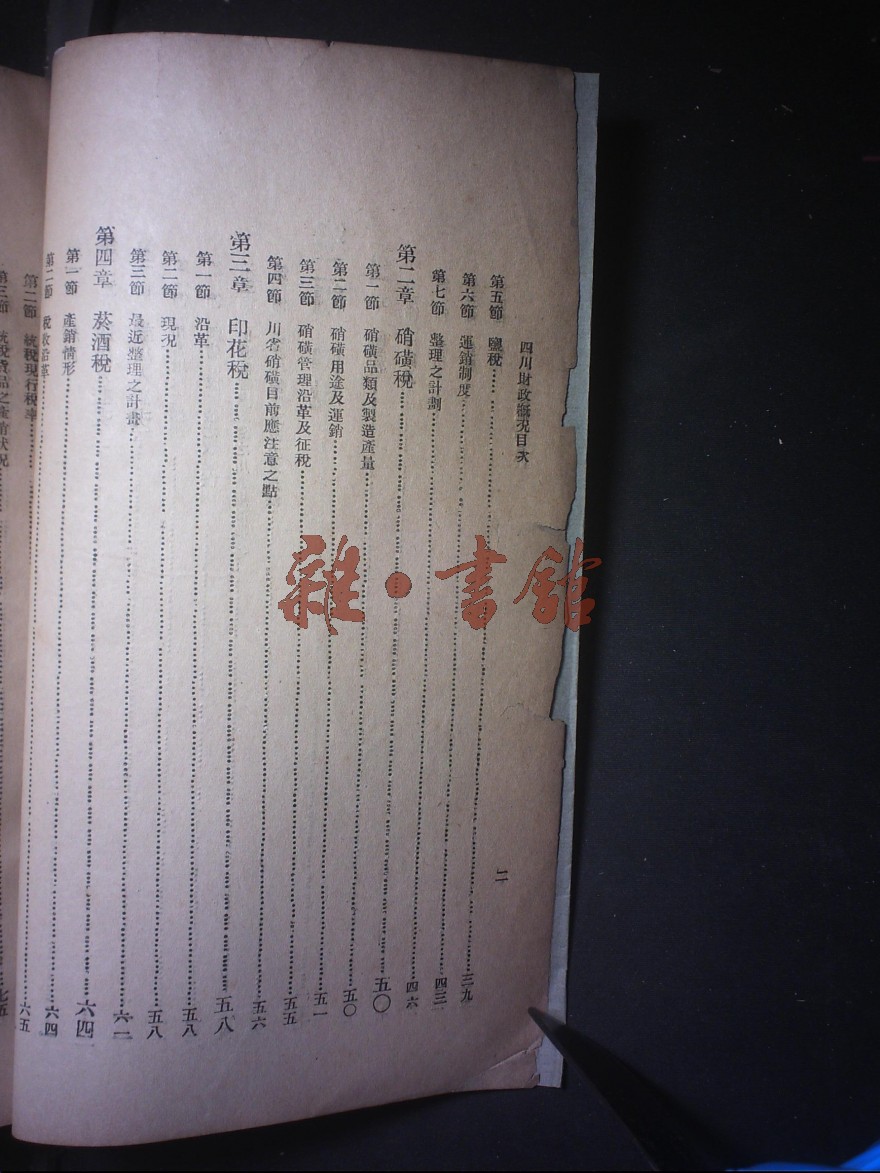 四川財政概況目次
二
第五節 鹽稅……三九
第六節 運銷制度……四三
第七節 整理之計劃……四六
第二章 硝磺稅……五〇
第一節 硝磺品類及製造產量……五〇
第二節 硝磺用途及運銷……五一
第三節 硝磺管理沿革及征稅……五五
第四節 川省硝磺目前應注意之點……五六
第三章 印花稅……五八
第一節 沿革……五八
第二節 現況……五八
第三節 最近整理之計畫……六二
第四章 菸酒稅……六四
第一節 產銷情形……六四
第二節 稅收沿革……六五
第二節 統稅現行稅率
第三節 統稅貨品之產銷狀況……七五
雜·書館